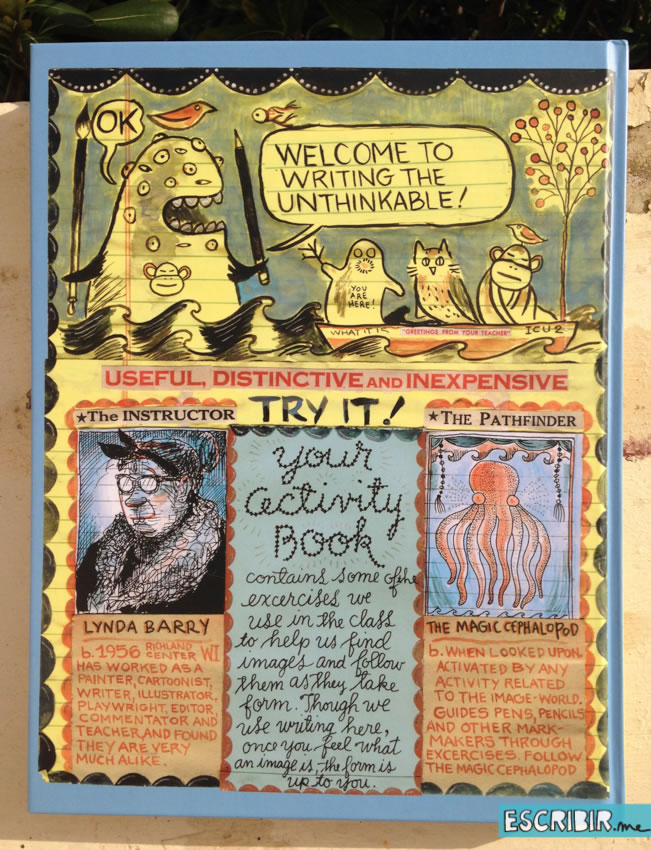 OK
WELCOME TO
WRITING THE
UNTHINKABLE!
YOU
ARE
HERE!
WHAT IT IS
"GREETINGS FROM YOUR TEACHER"
ICU-2
USEFUL, DISTINCTIVE AND INEXPENSIVE
TRY IT!
★The INSTRUCTOR
LYNDA BARRY
b. 1956 RICHLAND CENTER WI
HAS WORKED AS A
PAINTER, CARTOONIST,
WRITER, ILLUSTRATOR,
PLAYWRIGHT, EDITOR,
COMMENTATOR AND
TEACHER, AND FOUND
THEY ARE VERY
MUCH ALIKE.
your
activity
Book
contains some of the
excercises we
use in the class
to help us find
images and follow
them as they take
form. Though we
use writing here,
once you feel what
an image is, the form is
up to you.
★THE PATHFINDER
THE MAGIC CEPHALOPOD
b. WHEN LOOKED UPON.
ACTIVATED BY ANY
ACTIVITY RELATED
TO THE IMAGE-WORLD.
GUIDES PENS, PENCILS
AND OTHER MARK-
MAKERS THROUGH
EXCERCISES. FOLLOW
THE MAGIC CEPHALOPOD
ESCRIBIR.me